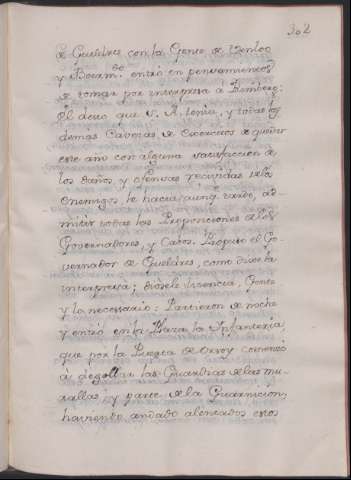 302
de Gueldres con la Gente de Venloo
y Boram.do entró en pensamientos
de tomar por interpresa á Remberg:
el deseo que S. A. tenia, y todas las
demas Cavezas de Exercitos de quedar
este año con alguna satisfaccion de
los daños, y ofensas recividas de los
Enemigos, le hacia, aunq. tarde, ad-
mitir todas las Proposiciones de los
Governadores, y Cavos. Propuso el Go-
vernador de Gueldres, como dice la
interpresa; diosele licencia, Gente
y lo necesario: Partieron de noche
y entró en la Plaza la Infanteria,
que por la Puerta de Orsoy comenzó
á degollar las Guardias de las mu-
rallas, y parte de la Guarnicion,
haviendo andado alentados estos